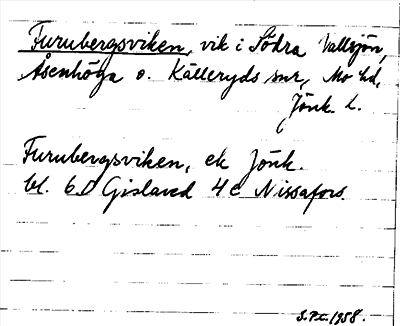 Furubergsviken, vik i Södra Vallsjön,
Åsenhöga o. Källeryds snr, Mo hd,
Jönk. L.
Furubergsviken, ek Jönk.
bl. 6D Gislaved 4c Nissafors.
1958.